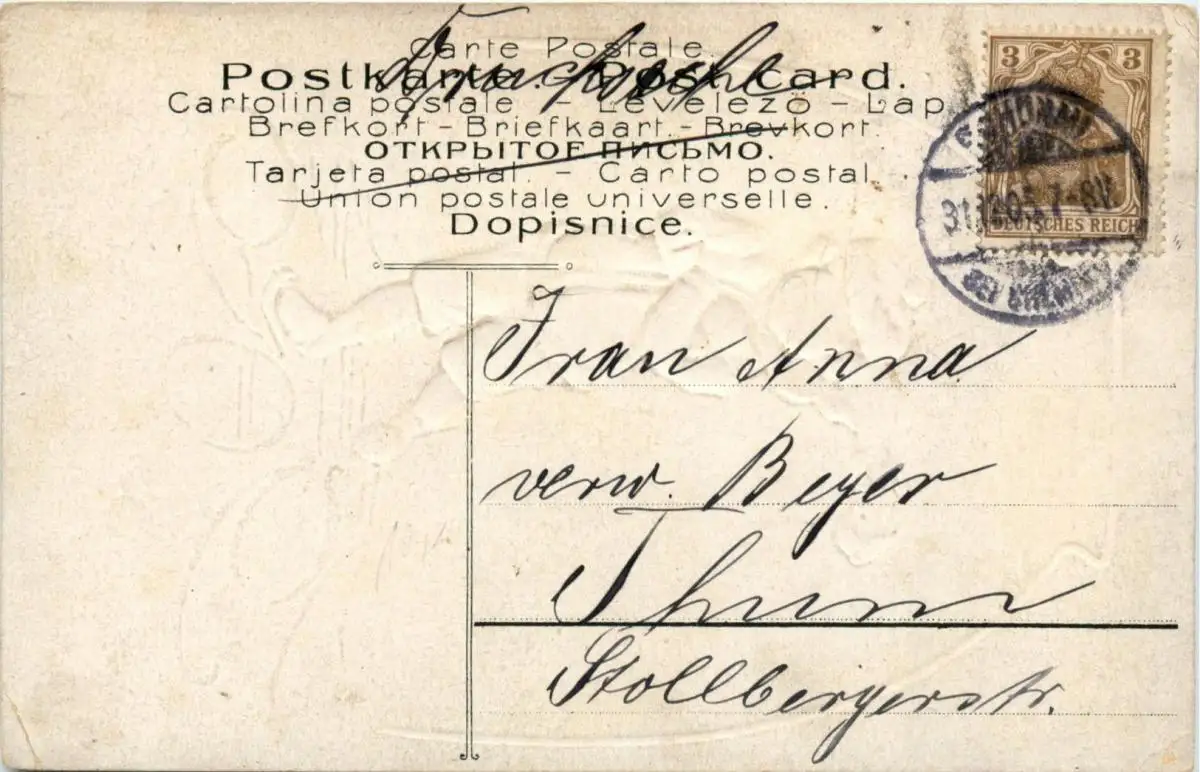 Drucksache
Carte Postale.
Postkarte. – Post card.
Cartolina postale – Levelező – Lap
Brefkort – Briefkaart. – Brevkort.
ОТКРЫТОЕ ПИСЬМО.
Tarjeta postal. – Carto postal.
Union postale universelle.
Dopisnice.
3 3
DEUTSCHES REICH
7-8V.
Frau Anna
verw. Beyer
Thum
Stollbergerstr.